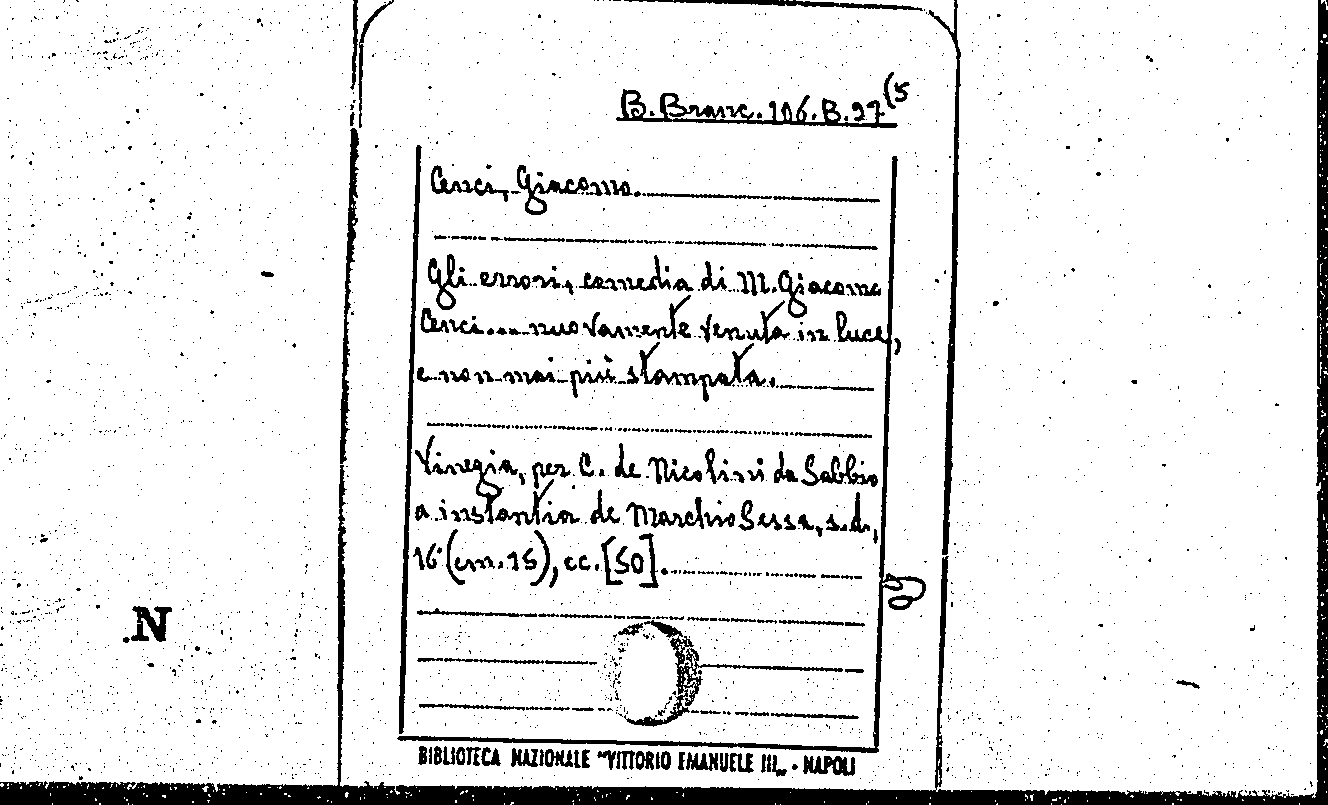 B. Branc. 106. B. 27 (5
Cenci, Giacomo.
Gli errori, comedia di M. Giacomo
Cenci.... nuovamente venuta in luce,
e non mai più stampata.
Vinegia, per C. de Nicolini da Sabbio
a instantia de Marchio Sessa, s.d.,
16° (cm. 15), cc. [50].
.N
BIBLIOTECA NAZIONALE "VITTORIO EMANUELE III„ - NAPOLI